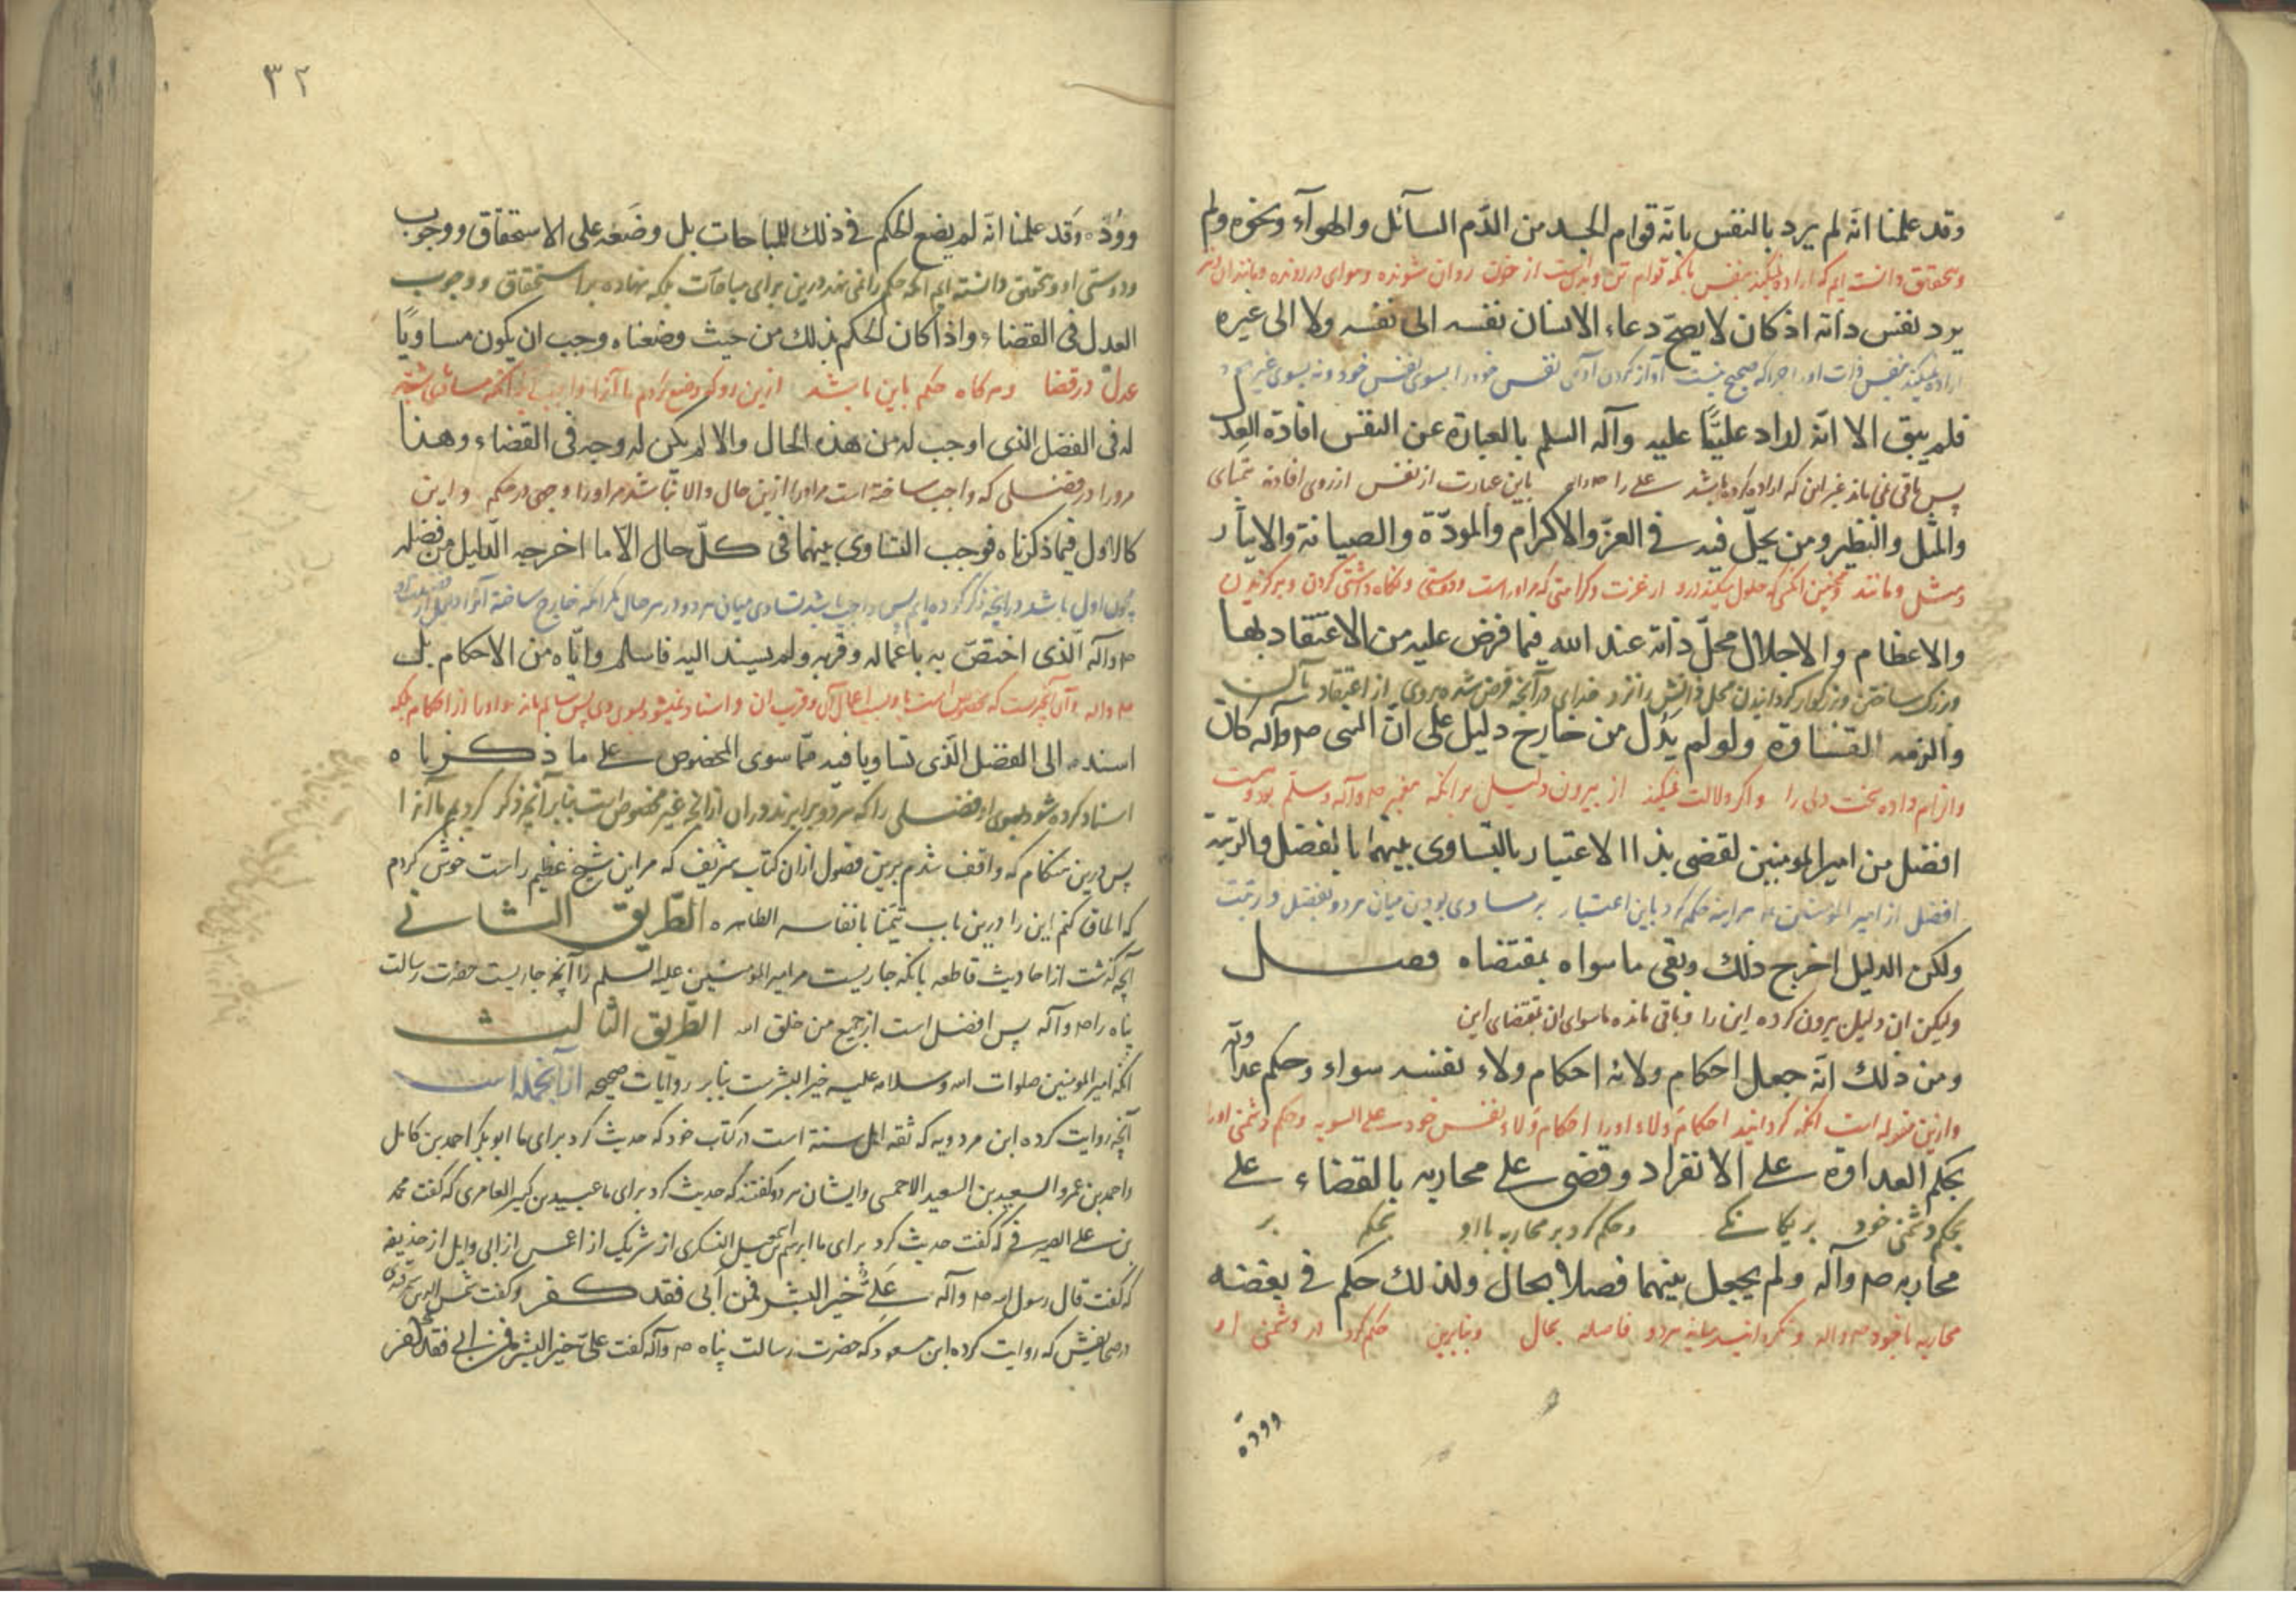 وقد علمنا انّه لم يرد بالنفس بانّه قوام الجسد من الدّم السآئل والهوآء ونحوه ولم
وبتحقیق دانسته ایم که اراده نمیکند بنفس بانکه قوام تن از خون روان شونده وهوای در رونده ومانند ان
يرد نفس ذاته اذ كان لا يصحّ دعاء الانسان نفسه الى نفسه ولا الى غيره
اراده نمیکند بنفس ذات اورا چراکه صحیح نیست آواز کردن آدمی نفس خودرا بسوی نفس خود ونه بسوی غیر
فلم يبق الا انّه اراد عليًّا عليه وآله السلم بالعبارة عن النفس افادة العدل
پس باقی نمی ماند غیر این که اراده کرده باشد علی را باین عبارت از نفس از روی افاده همتای
والمثل والنظير ومن يحلّ فيه فى العزّ والاكرام والمودّة والصيانة والايثار
ومثل ومانند وهمچنین انکسی که حلول میکند درو از عزت وکرامتی که مراوراست ودوستی ونگاه داشتی کردن وبرگزیدن
والاعظام والاجلال محلّ ذاته عند الله فيما فرض عليه من الاعتقاد بها
وبزرگ ساختن وبزرگوار گردانیدن محل ذاتش را نزد خدای در آنچه فرض شده بروی از اعتقاد بآن
والزمه القساوة ولو لم يدل من خارج دليل على انّ النبى صم وآله كان
والزام داده سخت دلی را واگر دلالت نمیکند از بیرون دلیل بر انکه پیغمبر صم وآله وسلم بودست
افضل من امير المومنين لقضى بذا الاعتبار بالتساوى بينهما بالفضل والرتبة
افضل از امیر المؤمنین هرآینه حکم کرد باین اعتبار بر مساوی بودن میان هردو بفضل ورتبت
ولكن الدليل اخرج ذلك وبقى ماسواه بمقتضاه فصل
ولیکن ان دلیل بیرون کرده این را وباقی مانده ماسوای ان بمقتضای این
ومن ذلك انّه جعل احكام ولائه احكام ولاء نفسه سواء وحكم عداوته
وازین مقوله است انکه گردانید احکام ولاء اورا احکام ولاء نفس خود علی السویه وحکم دشمنی اورا
بحكم العداوة على الانفراد وقضى على محاربه بالقضاء على
بحکم دشمنی خود بر یکانکی وحکم کرد بر محاربه با او بحکم بر
محاربه صم وآله ولم يجعل بينهما فصلا بحال ولذلك حكم فى بغضه
محاربه باخود صم واله ونگردانید میانه هردو فاصله بحال وبنابرین حکم کرد در دشمنی او
وودّه
٣٢
وودّه وقد علمنا انّه لم يضع الحكم فى ذلك للمباحات بل وضعه على الاستحقاق ووجوب
ودوستی او وتحقیق دانسته ایم انکه حکم را نمی نهد درین برای مباحات بلکه نهاده بر استحقاق ووجوب
العدل فى القضاء واذا كان الحكم بذلك من حيث وضعناه وجب ان يكون مساويًا
عدل در قضا وهرگاه حکم باین باشد ازین رو که وضع کردیم ما آنرا واجب انکه مساوی باشد
له فى الفضل الذى اوجب له من هذه الحال والا لم يكن له وجه فى القضاء وهذا
مرورا در فضلی که واجب ساخته است مراورا ازین حال والا نباشد مراورا وجهی در حکم واین
كالاول فيما ذكرناه فوجب التساوى بينهما فى كلّ حال الّا ما اخرجه الدّليل من فضله
چون اول باشد در آنچه ذکر کرده ایم پس واجب باشد تساوی میان هردو در هر حال مگر انکه خارج ساخته آنرا دلیل از
صم وآله الّذى اختصّ به باعماله وقربه ولم يسند اليه فاسلم واياه من الاحكام بل
صم واله وآن آنچیزست که مخصوص است باو باعمال آن وقرب ان واسناد نمیشود بسوی وی پس سالم ماند از احکام بلکه
اسنده الى الفضل الّذى تساويا فيه ممّا سوى المخصوص على ما ذكرناه
اسناد کرده شود بسوی ان فضلی را که هردو برابرند دران از آنچه غیر مخصوص است بنابر آنچه ذکر کردیم ما آنرا
پس درین هنگام که واقف شدم برین فصول ازان کتاب شریف که مر این شیخ عظیم راست خوش کردم
که الحاق کنم این را درین باب تیمنا بانفاسه الطاهره الطّریق الثانی
آنچه گذشت از احادیث قاطعه بانکه جاریست مر امیر المؤمنین علیه السلم را آنچه جاریست حضرت رسالت
پناه را صم وآله پس افضل است از جمیع من خلق الله الطّریق الثالث
انکه امیر المومنین صلوات الله وسلامه علیه خیر البشرست بنابر روایات صحیحه ازانجمله است
آنچه روایت کرده ابن مردویه که ثقه اهل سنة است در کتاب خود که حدیث کرد برای ما ابو بکر احمد بن کامل
واحمد بن عمرو السعید بن السعید الاحمسی وایشان هردو گفتند که حدیث کرد برای ما عبید بن کثیر العامری که گفت محمد
بن علی الصیرفی که گفت حدیث کرد برای ما ابرهیم بن اسمعیل الیشکری از شریک از اعمش از ابی وایل از حذیفه
که گفت قال رسول الله صم وآله علیٌّ خیر البشر فمن أبى فقد كفر وگفت شمس الدین سمرقندی
در صحایفش که روایت کرده ابن مسعود که حضرت رسالت پناه صم وآله گفت علیّ خیر البشر فمن ابى فقد كفر